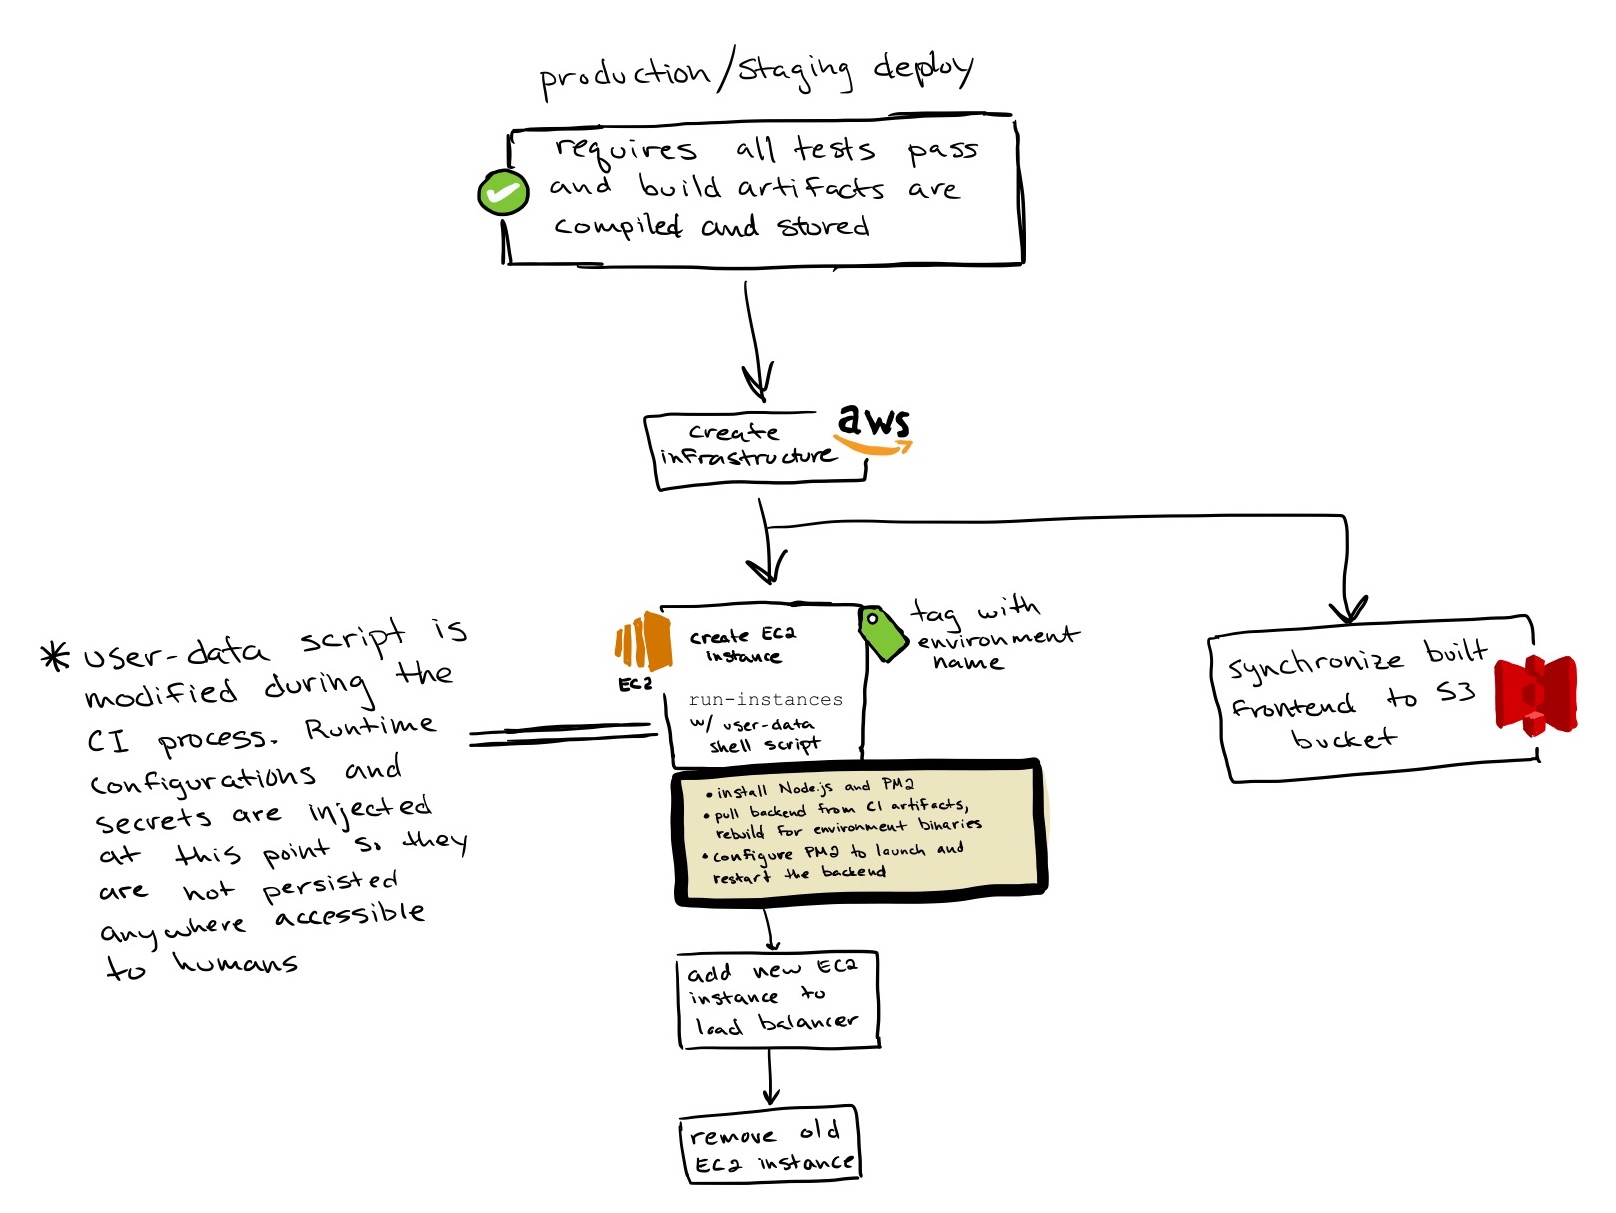 production/staging deploy
requires all tests pass
and build artifacts are
compiled and stored
create
infrastructure
aws
create EC2
instance
EC2
run-instances
w/ user-data
shell script
tag with
environment
name
synchronize built
frontend to S3
bucket
* user-data script is
modified during the
CI process. Runtime
configurations and
secrets are injected
at this point so they
are not persisted
anywhere accessible
to humans
• install Node.js and PM2
• pull backend from CI artifacts,
rebuild for environment binaries
• configure PM2 to launch and
restart the backend
add new EC2
instance to
load balancer
remove old
EC2 instance